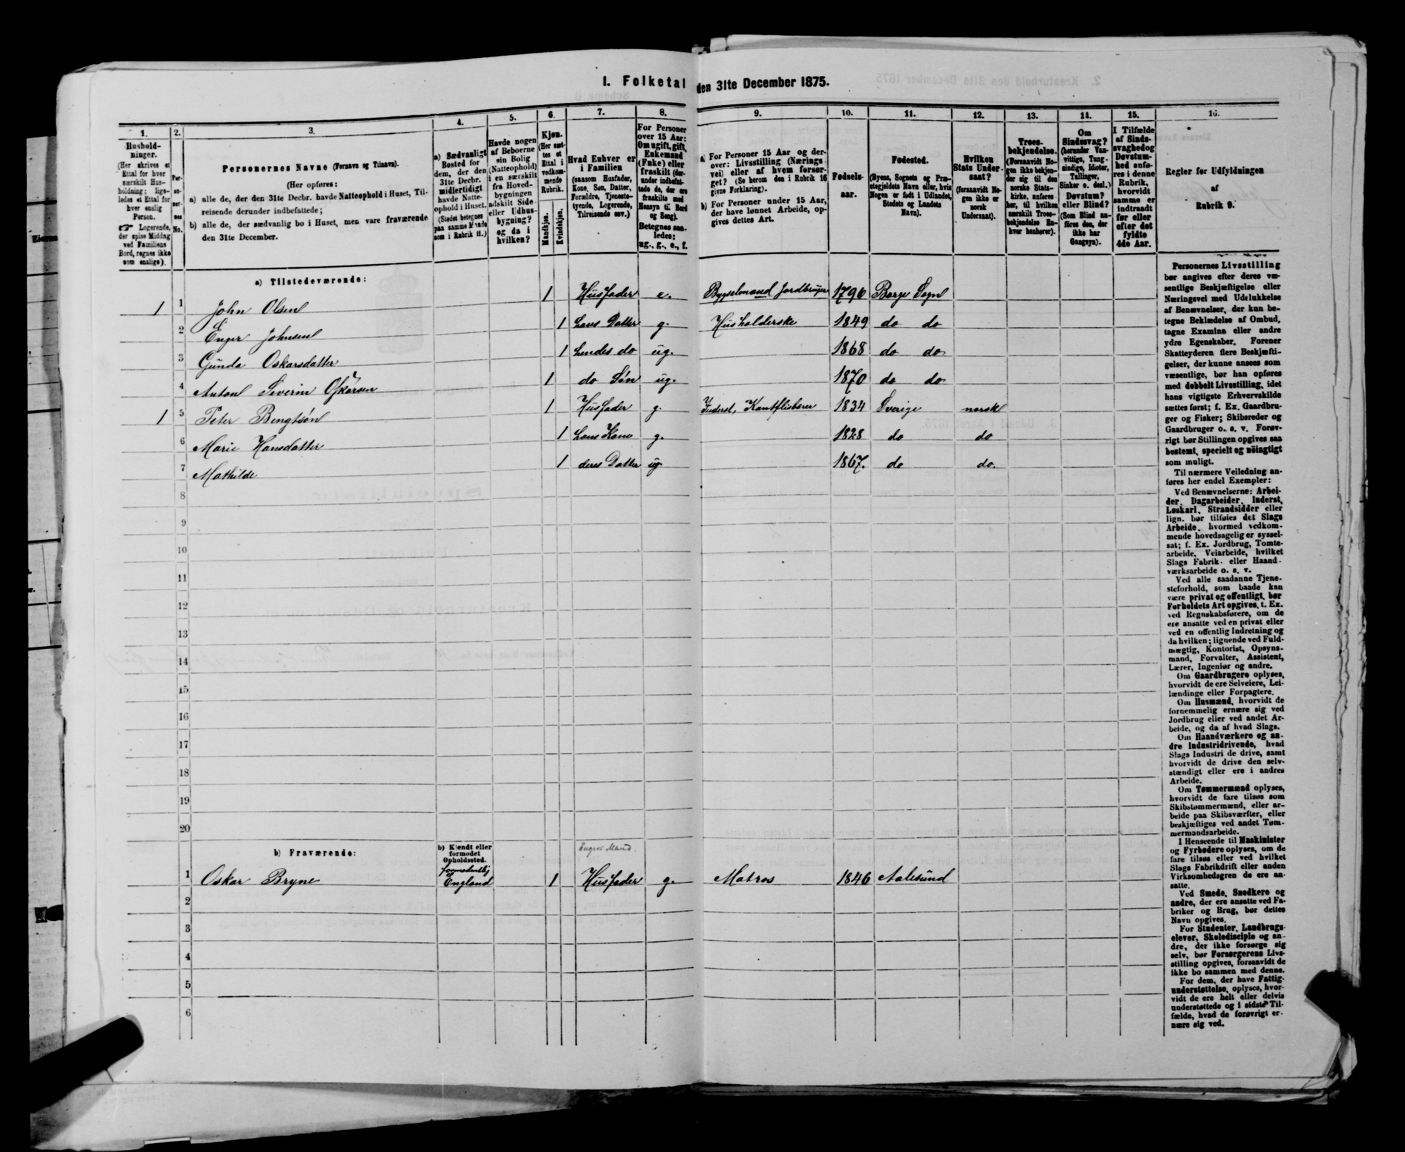 I. Folketal den 31te December 1875.
1.
Husholdninger.
(Her skrives et
Ettal for hver
særskilt Husholdning; ligeledes et Ettal for
hver enslig
Person.
Logerende,
der spise Middag
ved Familiens
Bord, regnes ikke
som enslige).
2.
3.
Personernes Navne (Fornavn og Tilnavn).
(Her opføres:
a) alle de, der den 31te Decbr. havde Natteophold i Huset, Tilreisende derunder indbefattede;
b) alle de, der sædvanlig bo i Huset, men vare fraværende
den 31te December.
4.
a) Sædvanligt
Bosted for
dem, der den
31te Decbr.
midlertidigt
havde Natteophold i Huset.
(Stedet betegnes
paa samme Maade
som i Rubrik 11.)
5.
Havde nogen
af Beboerne
sin Bolig
(Natteophold)
i en særskilt
fra Hovedbygningen
adskilt Side- eller Udhusbygning?
og da i
hvilken?
6.
Kjøn.
(Her sættes et
Ettal i
vedkommende
Rubrik.
Mandkjøn.
Kvindekjøn.
7.
Hvad Enhver er
i Familien
(saasom Husfader,
Kone, Søn, Datter,
Forældre, Tjenestetyende, Logerende,
Tilreisende osv.)
8.
For Personer
over 15 Aar:
Om ugift, gift,
Enkemand
(Enke) eller
fraskilt
Betegnes saaledes:
ug., g., e., f.
9.
a) For Personer 15 Aar og derover: Livsstilling (Næringsvei) eller af hvem forsørget? (Se herom den i Rubrik 16
givne Forklaring).
b) For Personer under 15 Aar,
der have lønnet Arbeide, opgives dettes Art.
10.
Fødselsaar.
11.
Fødested.
(Byens, Sognets og Præstegjeldets Navn eller, hvis
Nogen er født i Udlandet,
Stedets og Landets
Navn).
12.
Hvilken
Stats Undersaat?
(forsaavidt Nogen ikke er
norsk
Undersaat).
13.
Troesbekjendelse.
(Forsaavidt Nogen ikke bekjender sig til den
norske Statskirke, anføres
her, til hvilken
særskilt Troesbekjendelse Nogen
hver henhører).
14.
Om
Sindssvag?
(herunder Vanvittige, Tungsindige, Idioter,
Tullinger,
Sinker o. desl.)
Døvstum?
eller Blind?
(Som Blind anføres den, der
ikke har
Gangsyn).
15.
I Tilfælde
af Sindssvaghed og
Døvstumhed anføres i denne
Rubrik,
hvorvidt
samme er
indtraadt
før eller
efter det
fyldte
4de Aar.
16.
Regler for Udfyldningen
af
Rubrik 9.
a) Tilstedeværende:
1 1 John Olsen 1 Husfader e. Bygselmand Jordbruger 1790 Borge Sogn
2 Enger Johnsen 1 hans Datter g. Husholderske 1849 do do
3 Gunda Oskarsdatter 1 hendes do ug. 1868 do do
4 Anton Severin Oskarsen 1 do Søn ug. 1870 do do
1 5 Peter Bengtsøn 1 Husfader g. Inderst, 1834 Sverige norsk
6 Marie Hansdatter 1 hans Kone g. 1828 do do
7 Mathilde 1 deres Datter ug. 1867. do do.
8
9
10
11
12
13
14
15
16
17
18
19
20
b) Fraværende:
b) Kjendt eller
formodet
Opholdssted.
Engers Mand.
1 Oskar Bryne England 1 Husfader g. Matros 1846 Aalesund
2
3
4
5
6
Personernes Livsstilling
bør angives efter deres væsentlige Beskjæftigelse eller
Næringsvei med Udelukkelse
af Benævnelser, der kun betegne Beklædelse af Ombud,
tagne Examina eller andre
ydre Egenskaber. Forener
Skatteyderen flere Beskjæftigelser, der kunne ansees som
væsentlige, bør han opføres
med dobbelt Livsstilling, idet
hans vigtigste Erhvervskilde
sættes først; f. Ex. Gaardbruger og Fisker; Skibsreder og
Gaardbruger o. s. v. Forøvrigt bør Stillingen opgives saa
bestemt, specielt og nøiagtigt
som muligt.
Til nærmere Veiledning anføres her endel Exempler:
Ved Benævnelserne: Arbeider, Dagarbeider, Inderst,
Løskarl, Strandsidder eller
lign. bør tilføies det Slags
Arbeide, hvormed vedkommende hovedsagelig er sysselsat; f. Ex. Jordbrug, Tomtearbeide, Veiarbeide, hvilket
Slags Fabrik- eller Haandværksarbeide o. s. v.
Ved alle saadanne Tjenesteforhold, som baade kan
være privat og offentligt, bør
Forholdets Art opgives, t. Ex.
ved Regnskabsførere, om de
ere ansatte ved en privat eller
ved en offentlig Indretning og
da hvilken; lignende ved Fuldmægtig, Kontorist, Opsynsmand, Forvalter, Assistent,
Lærer, Ingeniør og andre.
Om Gaardbrugere oplyses,
hvorvidt de ere Selveiere, Leilændinge eller Forpagtere.
Om Husmænd, hvorvidt de
fornemmelig ernære sig ved
Jordbrug eller ved andet Arbeide, og da af hvad Slags.
Om Haandværkere og andre Industridrivende, hvad
Slags Industri de drive, samt
hvorvidt de drive den selvstændigt eller ere i andres
Arbeide.
Om Tømmermænd oplyses,
hvorvidt de fare tilsøs som
Skibstømmermænd, eller arbeide paa Skibsværfter, eller
beskjæftiges ved andet Tømmermandsarbeide.
I Henseende til Maskinister
og Fyrbødere oplyses, om de
fare tilsøs eller ved hvilket
Slags Fabrikdrift eller anden
Virksomhedsgren de ere ansatte.
Ved Smede, Snedkere og
andre, der ere ansatte ved Fabriker og Brug, bør dettes
Navn opgives.
For Studenter, Landbrugselever, Skoledisciple og andre, der ikke forsørge sig
selv, bør Forsørgerens Livsstilling opgives, forsaavidt de
ikke bo sammen med denne.
For dem, der have Fattigunderstøttelse, oplyses, hvorvidt de ere helt eller delvis
understøttede og i sidste Tilfælde, hvad de forøvrigt ernære sig ved.